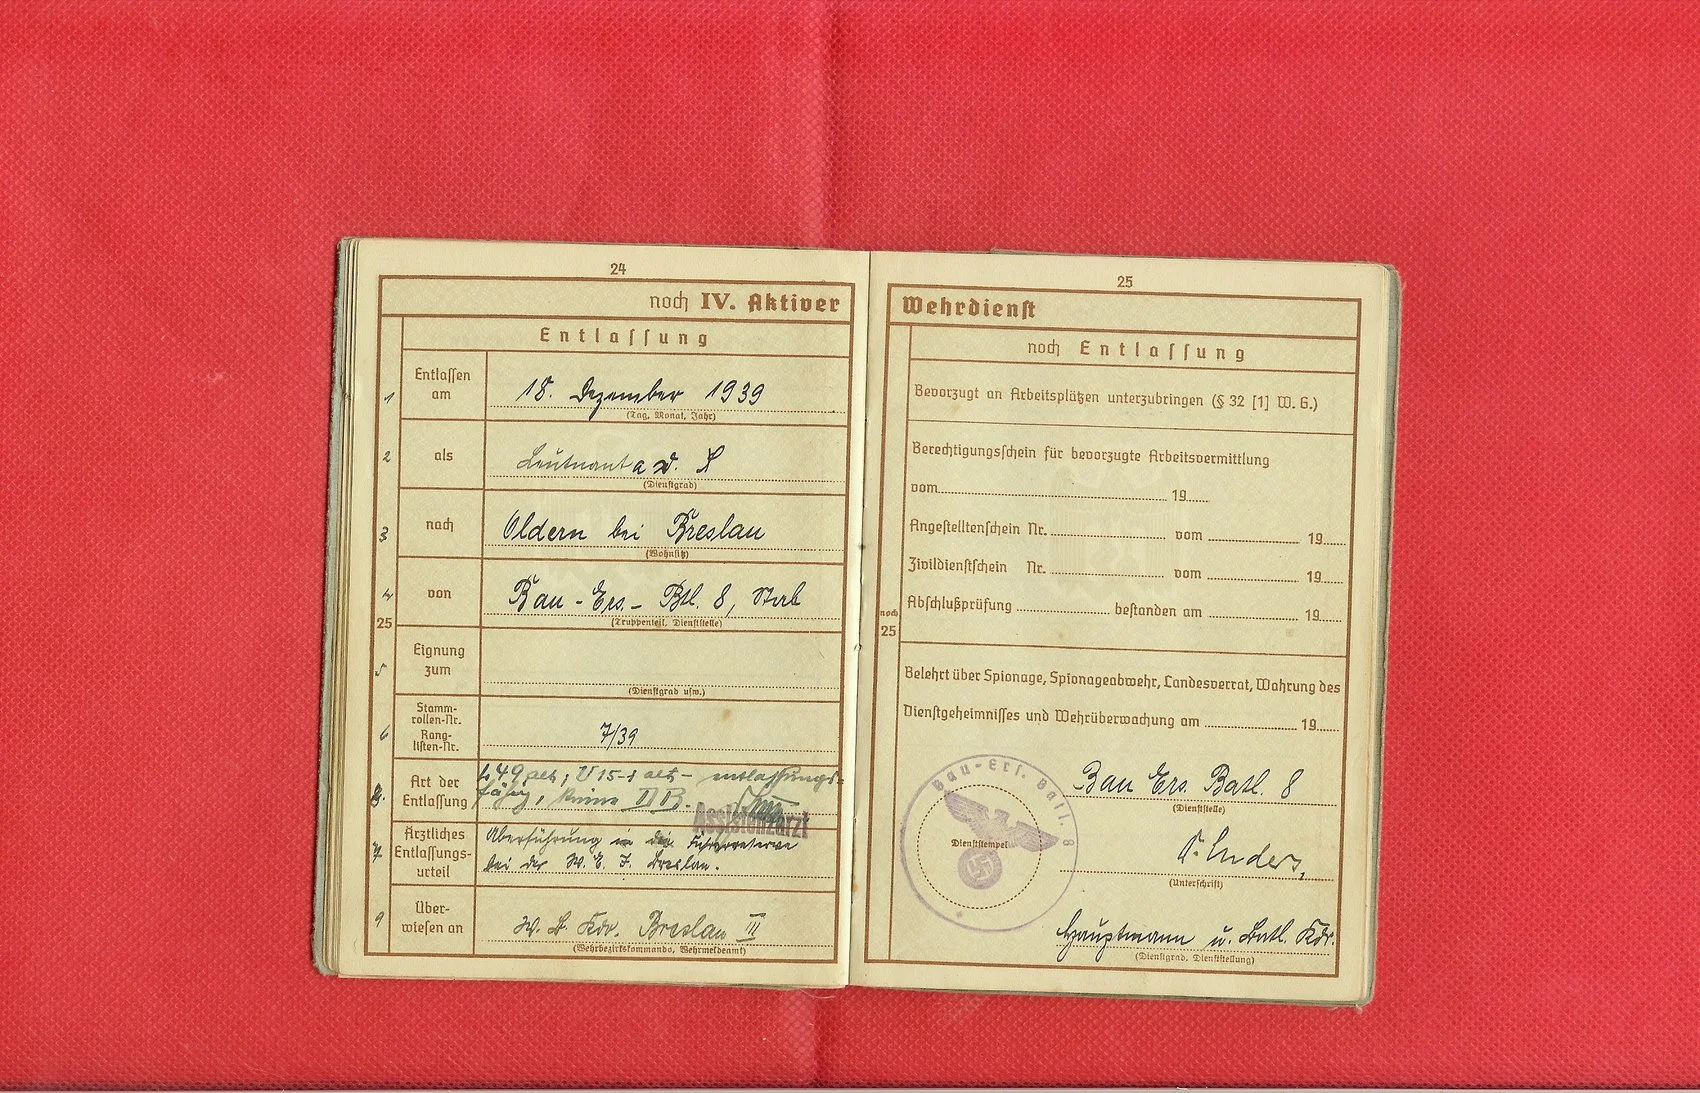 24
noch IV. Aktiver
Entlassung
1 Entlassen am
18. Dezember 1939
(Tag, Monat, Jahr)
2 als
Leutnant a. D.
(Dienstgrad)
3 nach
Oldern bei Breslau
(Wohnsitz)
4 von
Bau-Ers.-Btl. 8, Stab
(Truppenteil, Dienststelle)
25
5 Eignung zum
(Dienstgrad usw.)
6 Stamm-
rollen-Nr.
Rang-
listen-Nr.
7/39
8. Art der
Entlassung
L 49, U 15-1 entlassungs-
fähig, keine DB.
Assistenzarzt
7 Ärztliches
Entlassungs-
urteil
Überführung in die Führerreserve
bei der W. E. J. Breslau.
9 Über-
wiesen an
W. B. Kdo. Breslau III
(Wehrbezirkskommando, Wehrmeldeamt)
25
Wehrdienst
noch Entlassung
Bevorzugt an Arbeitsplätzen unterzubringen (§ 32 [1] W. G.)
Berechtigungsschein für bevorzugte Arbeitsvermittlung
vom 19
Angestelltenschein Nr. vom 19
Zivildienstschein Nr. vom 19
Abschlußprüfung bestanden am 19
noch
25
Belehrt über Spionage, Spionageabwehr, Landesverrat, Wahrung des
Dienstgeheimnisses und Wehrüberwachung am 19
Bau-Ers. Batl. 8
Dienststempel
Bau Ers. Batl. 8
(Dienststelle)
Enders,
(Unterschrift)
Hauptmann u. Batl. Kdr.
(Dienstgrad, Dienststellung)